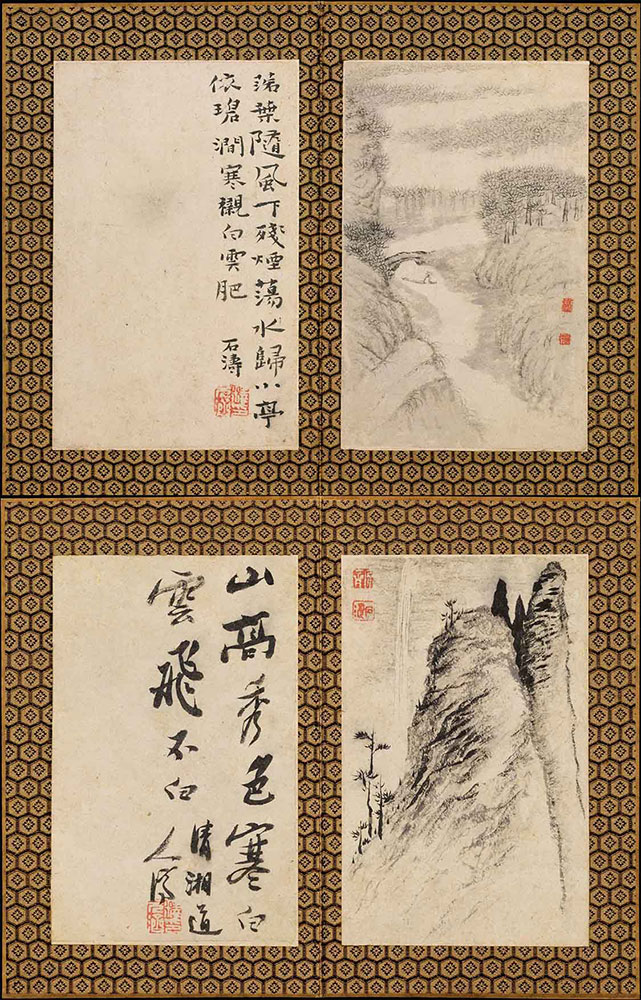 落葉隨風下殘煙蕩水歸小亭
依碧澗寒襯白雲肥
石濤
山高秀色寒白
雲飛不白
清湘道
人濟